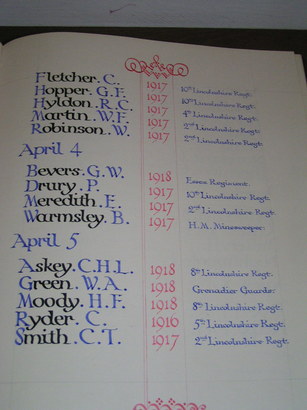 Fletcher. C. 1917 10th Lincolnshire Regt.
Hopper. G. F. 1917 10th Lincolnshire Regt.
Hyldon. R. C. 1917 4th Lincolnshire Regt.
Martin. W. F. 1917 2nd Lincolnshire Regt.
Robinson. W. 1917 2nd Lincolnshire Regt.
April 4
Bevers. G. W. 1918 Essex Regiment.
Drury. P. 1917 10th Lincolnshire Regt.
Meredith. E. 1917 2nd Lincolnshire Regt.
Warmsley. B. 1917 H. M. Minesweeper.
April 5
Askey. C. H. L. 1918 8th Lincolnshire Regt.
Green. W. A. 1918 Grenadier Guards.
Moody. H. F. 1918 8th Lincolnshire Regt.
Ryder. C. 1916 5th Lincolnshire Regt.
Smith. C. T. 1917 2nd Lincolnshire Regt.